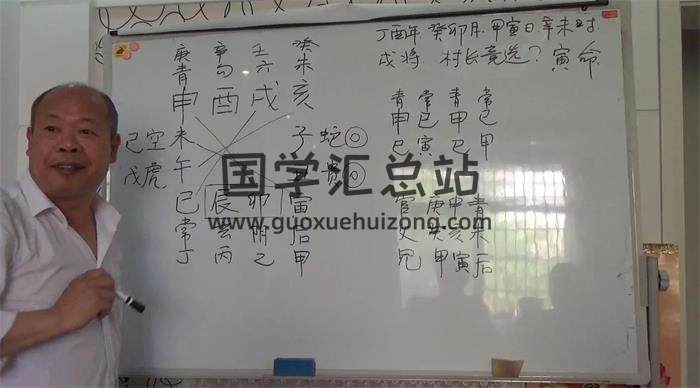 丁酉年 癸卯月 甲寅日 辛未时
戌将 村长竞选？ 寅命
庚 辛 壬 癸
青 勾 六 朱
申 酉 戌 亥
己 空 未 子 蛇 ◎
戊 虎 午 ◎
巳 辰 卯 寅
常 玄 阴 后
丁 丙 乙 甲
青 常 青 常
申 巳 申 巳
巳 寅 巳 甲
官 庚 甲 青
父 癸 亥 未
兄 甲 寅 后
国学汇总站
www.guoxuehuizong.com